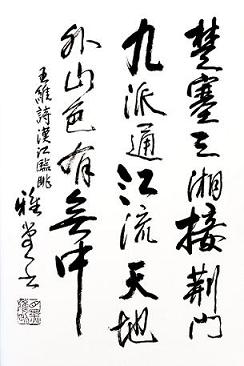 楚塞三湘接荆門
九派通江流天地
外山色有無中
王維詩漢江臨眺
雅堂书